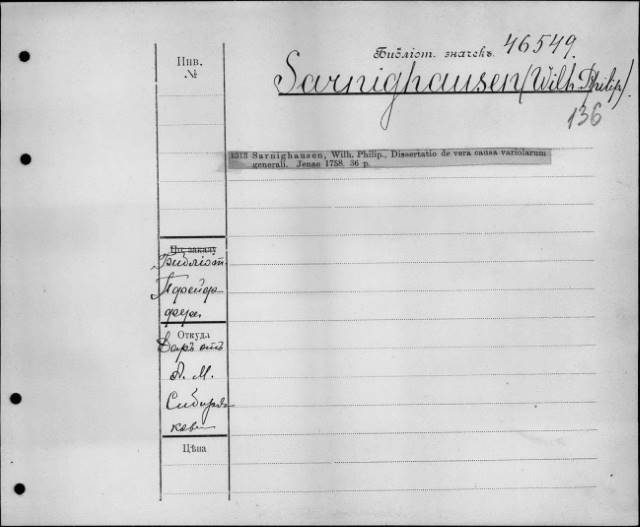 Инв.
№
Библіот. значекъ. 46549.
Sarnighausen (Wilh. Philip.)
136
1313 Sarnighausen, Wilh. Philip., Dissertatio de vera causa variolarum
generali. Jenae 1758. 36 p.
По заказу
Библіот.
Откуда
Даръ отъ
А. М.
Сибиря-
кова
Цѣна